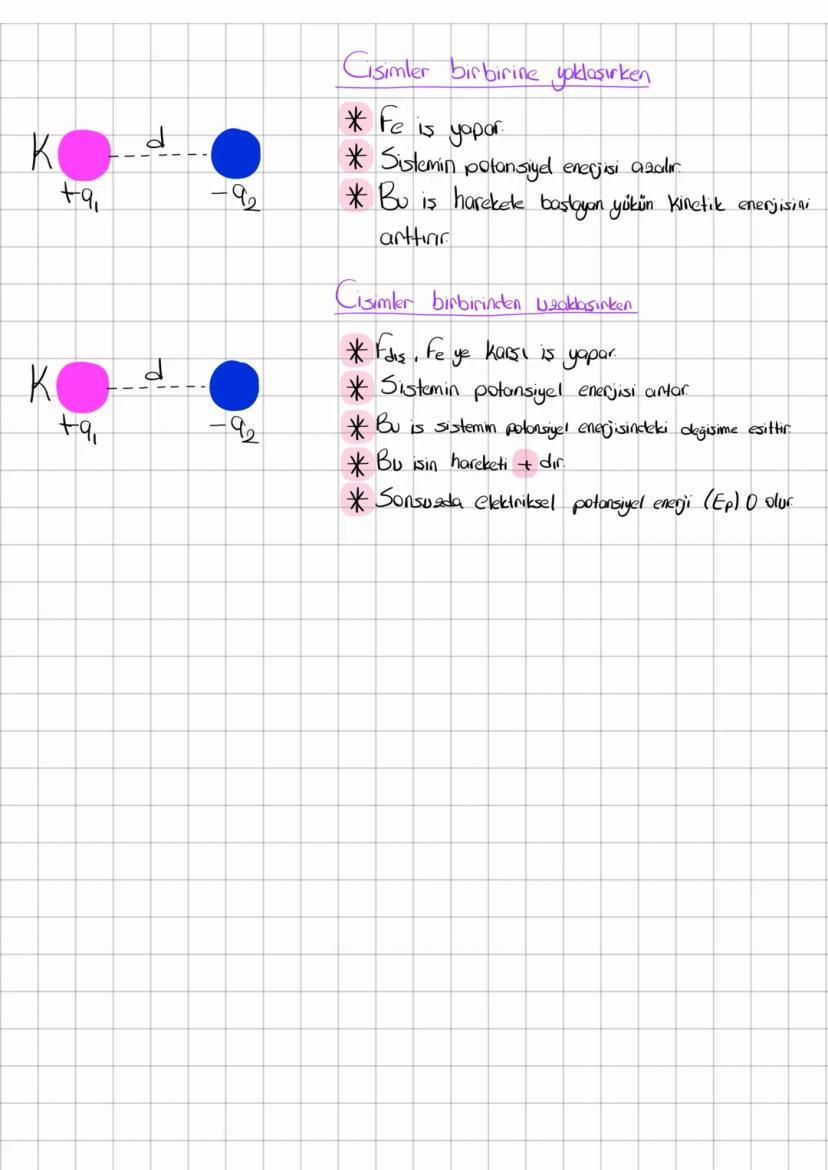 Cisimler birbirine yaklaşırken
K d
+q₁ -q₂
* Fe iş yapar.
* Sistemin potansiyel enerjisi azalır.
* Bu iş harekete başlayan yükün kinetik enerjisini
arttırır.
Cisimler birbirinden uzaklaşırken
K d
+q₁ -q₂
* Fdış, Fe ye karşı iş yapar.
* Sistemin potansiyel enerjisi artar.
* Bu iş sistemin potansiyel enerjisindeki değişime eşittir.
* Bu işin hareketi + dır.
* Sonsuzda elektriksel potansiyel enerji (Ep) 0 olur.